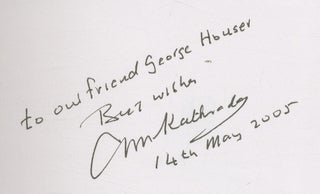 to our friend George Houser
Best wishes
AMKathrada
14th May 2005